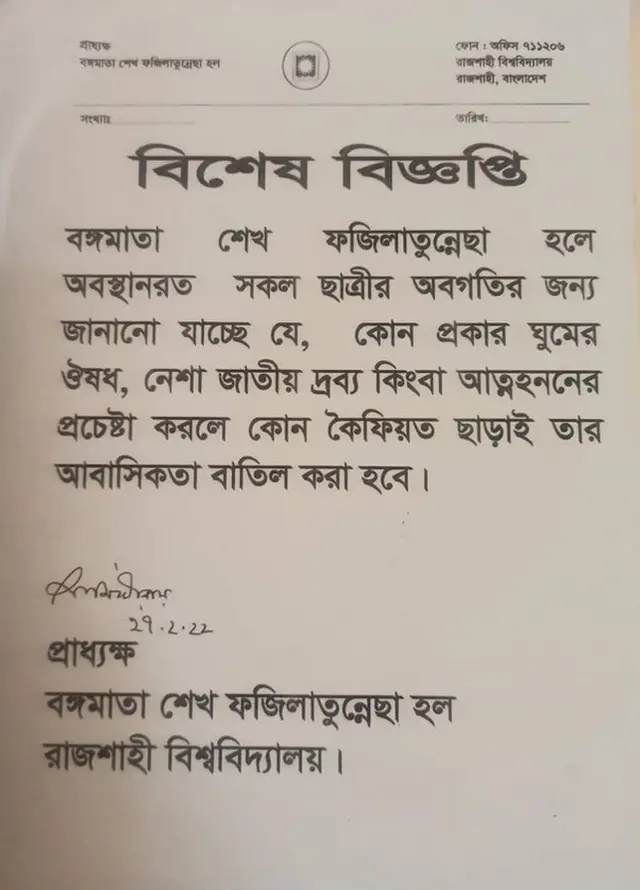 প্রাধ্যক্ষ
বঙ্গমাতা শেখ ফজিলাতুন্নেছা হল
ফোন : অফিস ৭১১২০৬
রাজশাহী বিশ্ববিদ্যালয়
রাজশাহী, বাংলাদেশ
সংখ্যাঃ
তারিখ:
বিশেষ বিজ্ঞপ্তি
বঙ্গমাতা শেখ ফজিলাতুন্নেছা হলে
অবস্থানরত সকল ছাত্রীর অবগতির জন্য
জানানো যাচ্ছে যে, কোন প্রকার ঘুমের
ঔষধ, নেশা জাতীয় দ্রব্য কিংবা আত্নহননের
প্রচেষ্টা করলে কোন কৈফিয়ত ছাড়াই তার
আবাসিকতা বাতিল করা হবে।
২৭.২.২২
প্রাধ্যক্ষ
বঙ্গমাতা শেখ ফজিলাতুন্নেছা হল
রাজশাহী বিশ্ববিদ্যালয়।